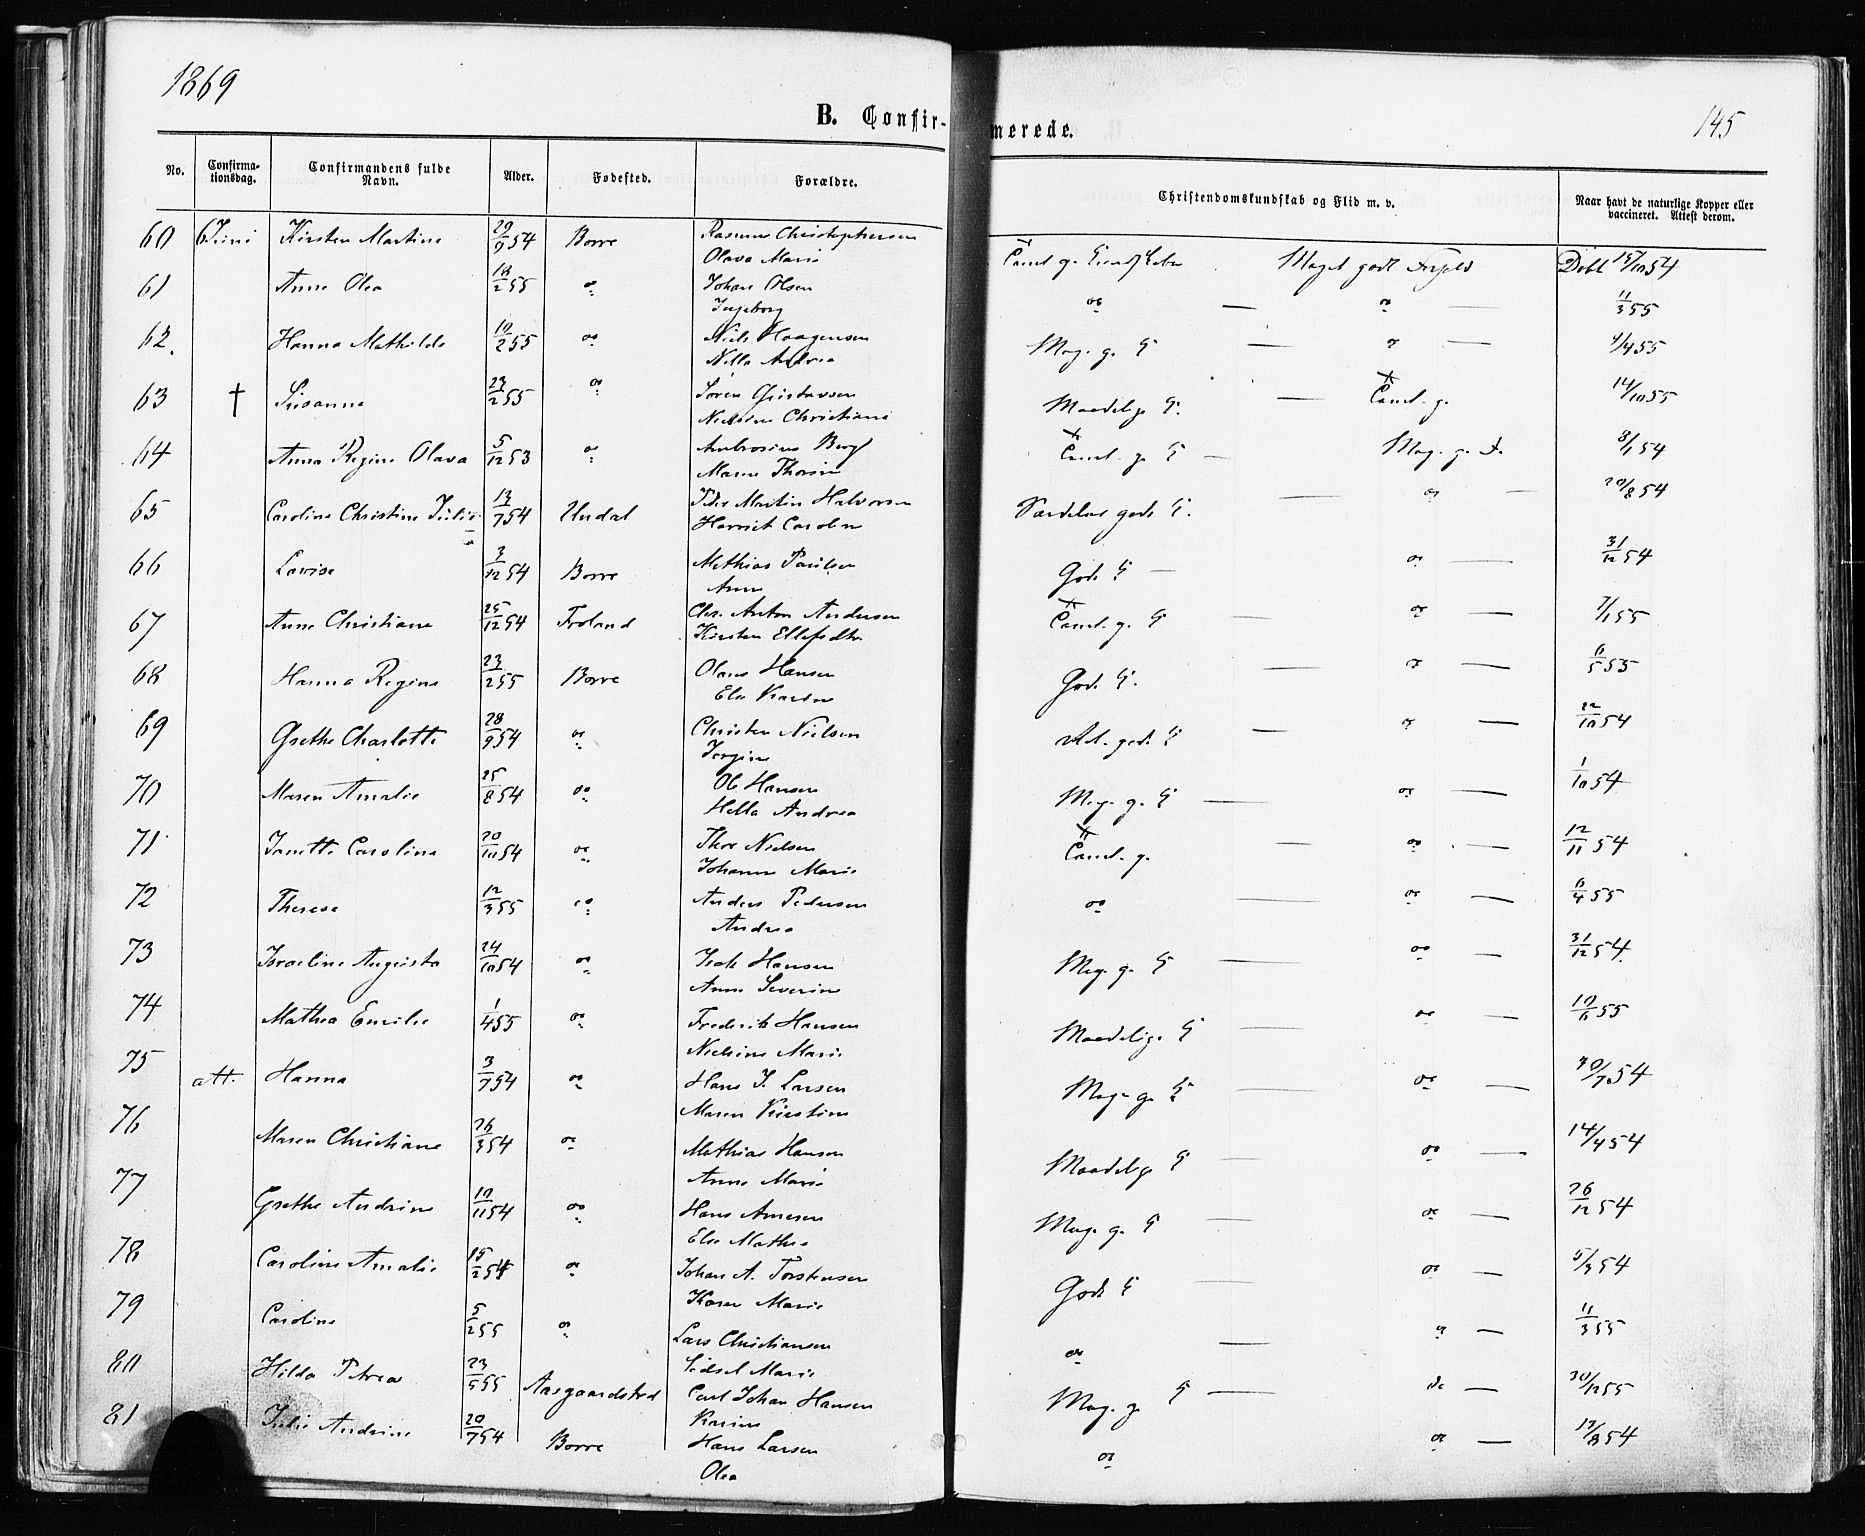 1869
145
B. Confir-
merede.
No.
Confirma-
tionsdag.
Confirmandens fulde
Navn.
Alder.
Fødested.
Forældre.
Christendomskundskab og Flid m. v.
Naar havt de naturlige Kopper eller
vaccineret. Attest derom.
60 6 Juni Kirsten Martine 29/9 54 Borre Rasmus Christophersen
Olava Marie
Meget godt Forhold Døbt 15/10 54
61 Anne Olea 18/2 55 " Johan Olsen
Ingeborg
do — do — 11/3 55
62. Hanna Mathilde 10/2 55 do Niels Haagensen
Nilla Andrea
Meg. g. — " — 9/4 55
63 † Susanne 23/2 55 do Søren Gustavsen
Nielsine Christiane
Maadelig — 14/10 55
64 Anna Regine Olava 5/12 53 " Ambrosius Berg
Maren Thorine
Meg. g. F. 8/1 54
65 Caroline Christine Julie 13/7 54 Undal Peder Martin Halvorsen
Harriet Caroline
Særdeles godt — do — 20/8 54
66 Lovise 3/12 54 Borre Mathias Paulsen
Anne
Godt — do — 31/12 54
67 Anne Christiane 25/12 54 Froland Chr. Anton Andersen
Kirsten Ellefsdtr
— do — 7/1 55
68 Hanna Regine 23/2 55 Borre Olaus Hansen
Else Karine
Godt — do — 11/5 55
69 Grethe Charlotte 28/9 54 do Christen Nielsen
Jorgine
godt — do — 22/10 54
70 Maren Amalie 25/8 54 do Ole Hansen
Hella Andrea
Meg. g. — do — 1/10 54
71 Janette Caroline 20/10 54 do Thor Nielsen
Johanne Marie
— do — 12/11 54
72 Therese 12/3 55 do Anders Pedersen
Andrea
do — do — 11/4 55
73 Israeline Augusta 24/10 54 do Isak Hansen
Anne Severine
Meg. g. — do — 31/12 54
74 Mathea Emilie 1/4 55 do Frederik Hansen
Nielsine Marie
Maadelig — do — 17/6 55
75 att. Hanna 3/7 54 do Hans J. Larsen
Maren Kirstine
Meg. g. — do — 30/7 54
76 Maren Christiane 26/3 54 do Mathias Hansen
Anne Marie
Maadelig — do — 14/4 54
77 Grethe Andrine 17/11 54 do Hans Arnesen
Else Mathea
Meg. g. — do — 26/12 54
78 Caroline Amalie 15/2 54 do Johan A. Torstensen
Karen Marie
Godt — do — 5/3 54
79 Caroline 5/2 55 do Lars Christiansen
Sidsel Marie
do — do — 11/3 55
80 Hilda Petrea 23/5 55 Aasgaardstrand Carl Johan Hansen
Karine
Meg. g. — do — 30/12 55
81 Julie Andrine 20/7 54 Borre Hans Larsen
Olea
do do — 17/8 54